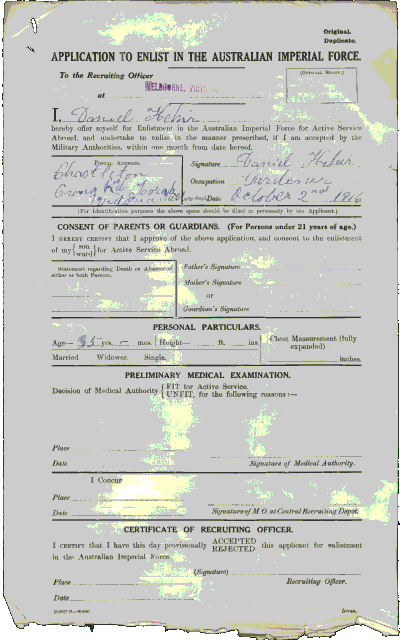 Original.
Duplicate.
APPLICATION TO ENLIST IN THE AUSTRALIAN IMPERIAL FORCE.
To the Recruiting Officer
(OFFICIAL STAMP.)
at MELBOURNE, VICT
I, Daniel
hereby offer myself for Enlistment in the Australian Imperial Force for Active Service
Abroad, and undertake to enlist in the manner prescribed, if I am accepted by the
Military Authorities, within one month from date hereof.
POSTAL ADDRESS.
Signature Daniel
Occupation Gardener
Date October 2nd 1916
(For Identification purposes the above space should be filled in personally by the Applicant.)
CONSENT OF PARENTS OR GUARDIANS. (For Persons under 21 years of age.)
I HEREBY CERTIFY that I approve of the above application, and consent to the enlistment
of my { son ward } for Active Service Abroad.
Statement regarding Death or Absence of
either or both Parents.
Father's Signature
Mother's Signature
or
Guardian's Signature
PERSONAL PARTICULARS.
Age— 35 yrs. – mos. Height— ft. ins.
Chest Measurement (fully
expanded)
Married Widower Single. inches.
PRELIMINARY MEDICAL EXAMINATION.
Decision of Medical Authority { FIT for Active Service.
UNFIT, for the following reasons :—
Place
Date Signature of Medical Authority.
I Concur
Place
Date Signature of M.O. at Central Recruiting Depot.
CERTIFICATE OF RECRUITING OFFICER.
I CERTIFY that I have this day provisionally ACCEPTED REJECTED this applicant for enlistment
in the Australian Imperial Force.
(Signature)
Place Recruiting Officer.
Date